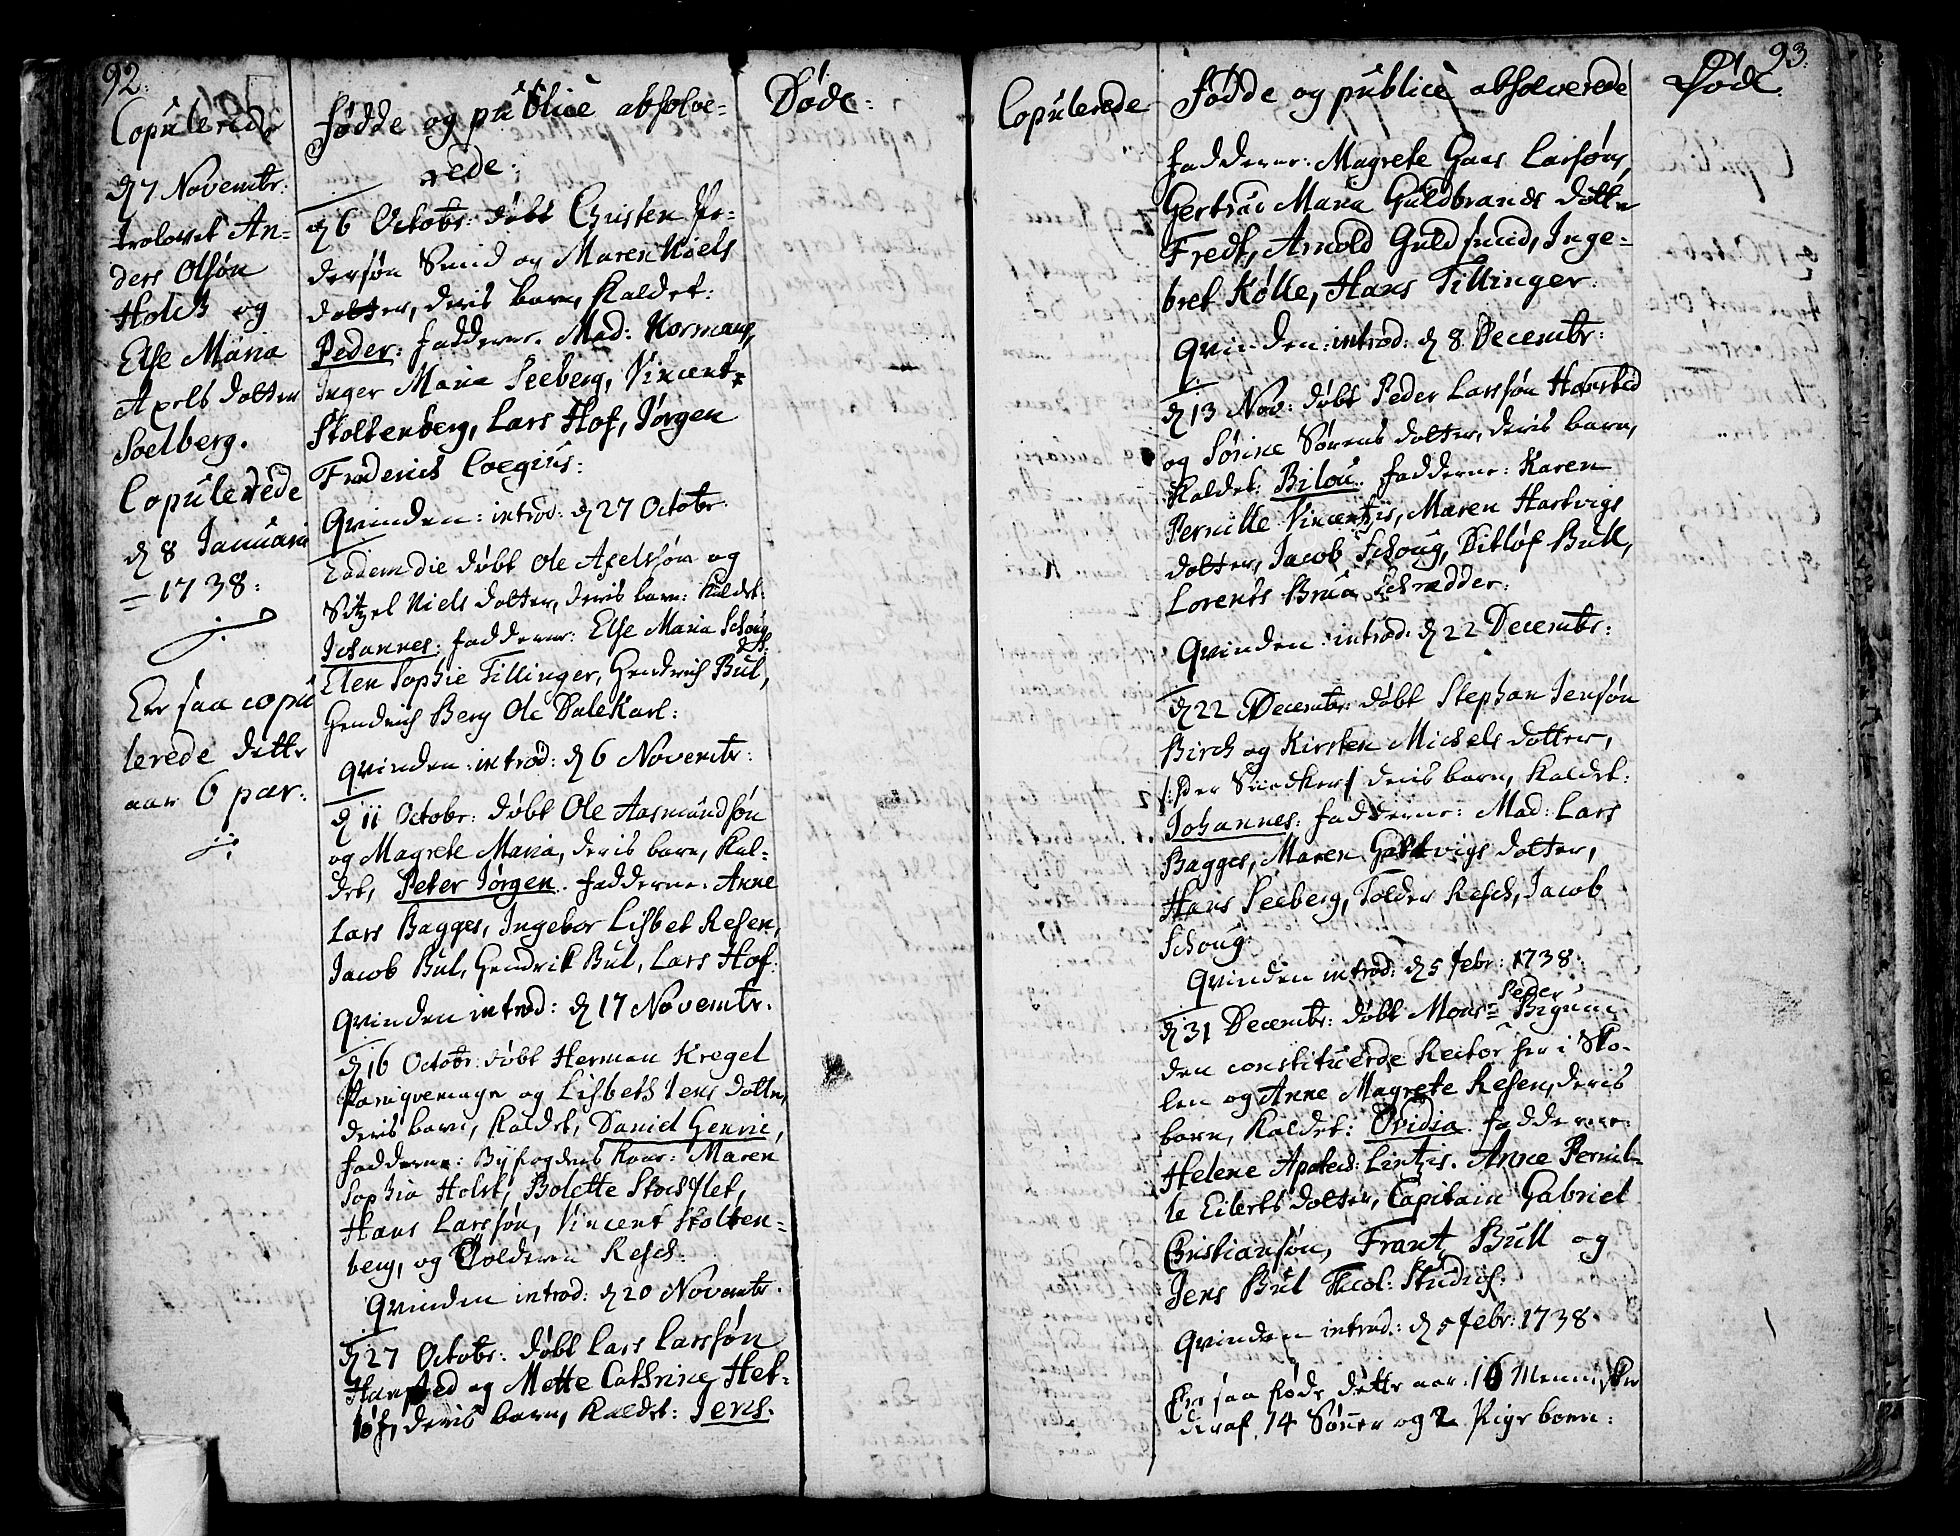 92.
Copulerede
d 7 Novembr:
trolovet An-
ders Olsøn
Holck og
Else Maria
Axels dotter
Soelberg.
Copulerede
d 8 Januarii
1738:
Er saa copu
lerede dette
aar 6 par.
Fødde og publice absolve-
rede:
d 6 Octobr: døbt Christen Pe-
dersøn Smid og Maren Niels
dotter, deris barn, Kaldet:
Peder: fadderne. Mad: Normans,
Inger Maria Seeberg, Vincent
Stoltenberg, Lars Hof, Jørgen
Friderich Coegius:
Qvinden: introd: d 27 Octobr.
Eodem die døbt Ole Axelsøn og
Sitzel Niels dotter, deris barn: Kaldet:
Johannes: fadderne: Else Maria Schoug
Elen Sophie Tillinger, Hendrich Bul,
Hendrich Berg Ole Dalekarl:
Qvinden: introd: d 6 Novembr:
d 11 Octobr: døbt Ole Aasmundsøn
og Magrete Maria, deris barn, Kal-
det, Peter Jørgen. fadderne. Anne
Lars Bagges, Ingebor Lisbet Resen,
Jacob Bul, Hendrik Bul, Lars Hof:
Qvinden introd: d 17 Novembr.
d 16 Octobr: døbt Herman Kregel
Paruqvemager og Lisbeth Jens dotter,
deris barn, Kaldet, Daniel Henric,
fadderne: Byfogdens Kone: Maren
Sophia Holst, Bolette Stockflet,
Hans Larssøn, Vincent Stolten-
berg, og Tolderen Resch:
Qvinden introd: d 20 Novembr.
d 27 Octobr: døbt Lars Larssøn
Hansted og Mette Cathrine Het-
løf, deris barn, Kaldet: Jens.
Døde:
Copulerede
Fødde og publice absolverede
fadderne: Magrete Hans Larsøns,
Gertrud Maria Guldbrands dotter
Fredr, Arnold Guldsmid, Inge-
bret Kølle, Hans Tillinger.
Qvinden: introd: d 8 Decembr:
d 13 Nov: døbt Peder Larssøn Hansted
og Sørine Sørens dotter, deris barn,
Kaldet: Bilou. fadderne: Karen
Pernille Vincentzis, Maren Hartvigs
dotter, Jacob Schoug, Ditløf Bull,
Lorents Brua Schrædder:
Qvinden: introd: d 22 Decembr:
d 22 Decembr: døbt Stephan Jensøn
Birch og Kirsten Michels dotter,
/: Per Snedker :/ deris barn, Kaldet:
Johannes: fadderne: Mad: Lars
Bagges, Maren Hartvigs dotter,
Hans Seeberg, Tolder Resch, Jacob
Schoug:
Qvinden introd: d 5 febr: 1738:
Peder
d 31 Decembr: døbt Monsr Bigum
den constituerde Rector her i Sko-
len og Anne Magrete Resen, deris
barn, Kaldet: Ovidia. fadderne:
Helene Apotech: Lintzis. Anne Pernil-
le Eilerts dotter, Capitain Gabriel
Christiansøn, Frantz Bull og
Jens Bul Theol: Studios:
Qvinden introd: d 5 febr: 1738.
Er saa føde dette aar 16 Mennisker
deraf 14 Sønner og 2 Pige børn:
93.
Døde